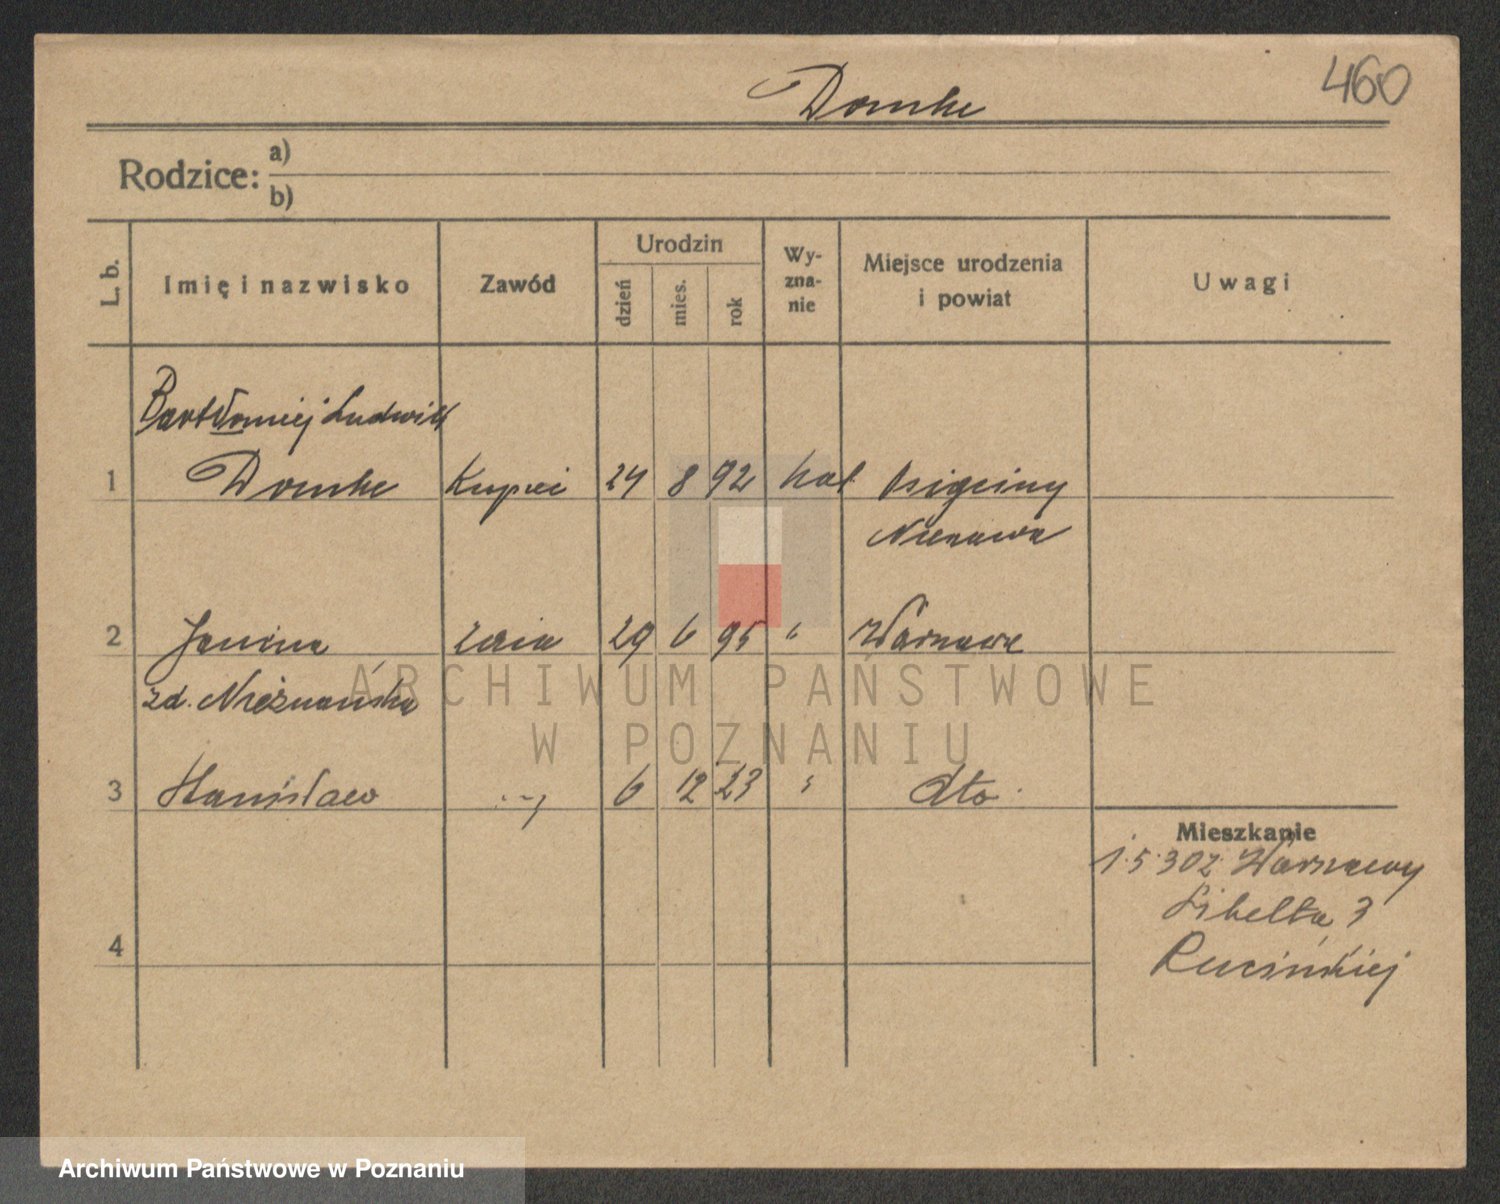 460
Domke
Rodzice: a)
b)
L. b.
Imię i nazwisko
Zawód
Urodzin
dzień
mies.
rok
Wy-
zna-
nie
Miejsce urodzenia
i powiat
Uwagi
Bartłomiej Ludwik
1 Domke Kupiec 24 8 92 kat Osięciny
Nieszawa
2 Janina żona 29 6 95 " Warszawa
zd. Nieznańska
3 Stanisław 6 12 23 " dto
Mieszkanie
1.5.30 z Warszawy
Libelta 3
Rucińskiej
4
ARCHIWUM PAŃSTWOWE
W POZNANIU
Archiwum Państwowe w Poznaniu